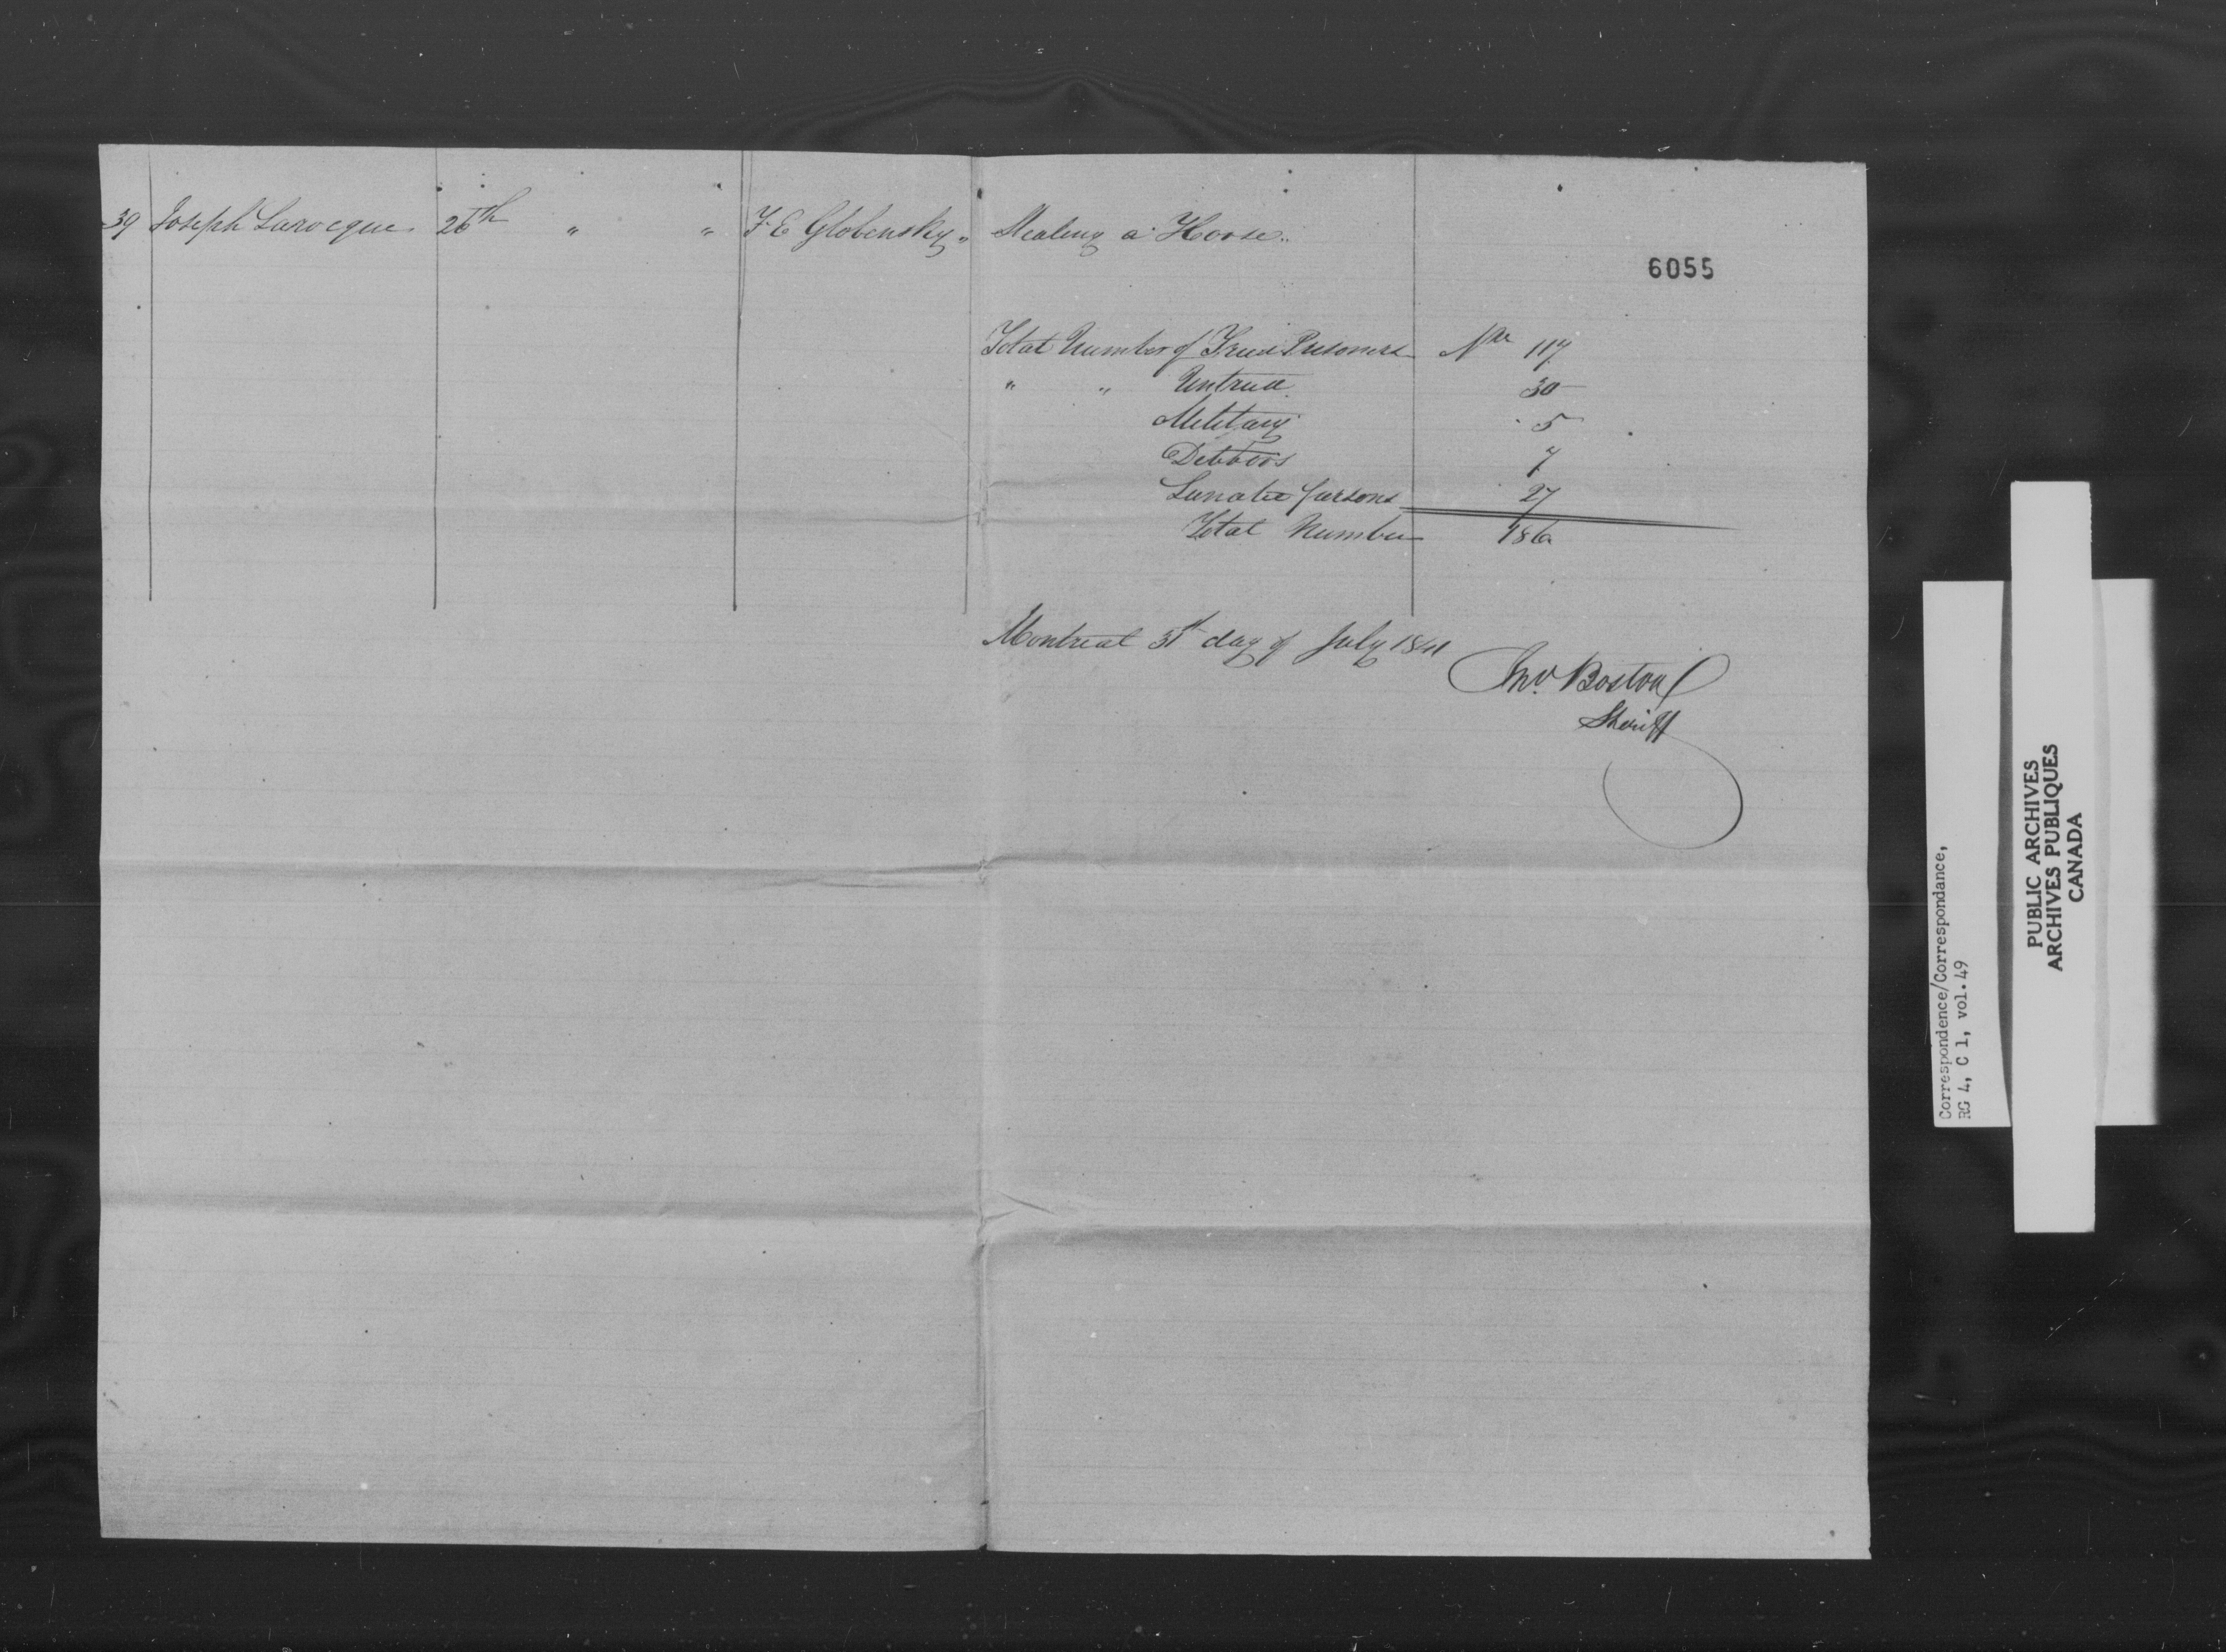 39 Joseph Larocque 26th " " F E Globensky " Stealing a Horse "
6055
Total Number of Tried Prisoners Nr 117
" " Untried 30
Military 5
Debtors 7
Lunatic persons 27
Total Number 186
Montreal 31st day of July 1841
Jno. Boston
Sheriff
Correspondence/Correspondance,
RG 4, C 1, vol. 49
PUBLIC ARCHIVES
ARCHIVES PUBLIQUES
CANADA